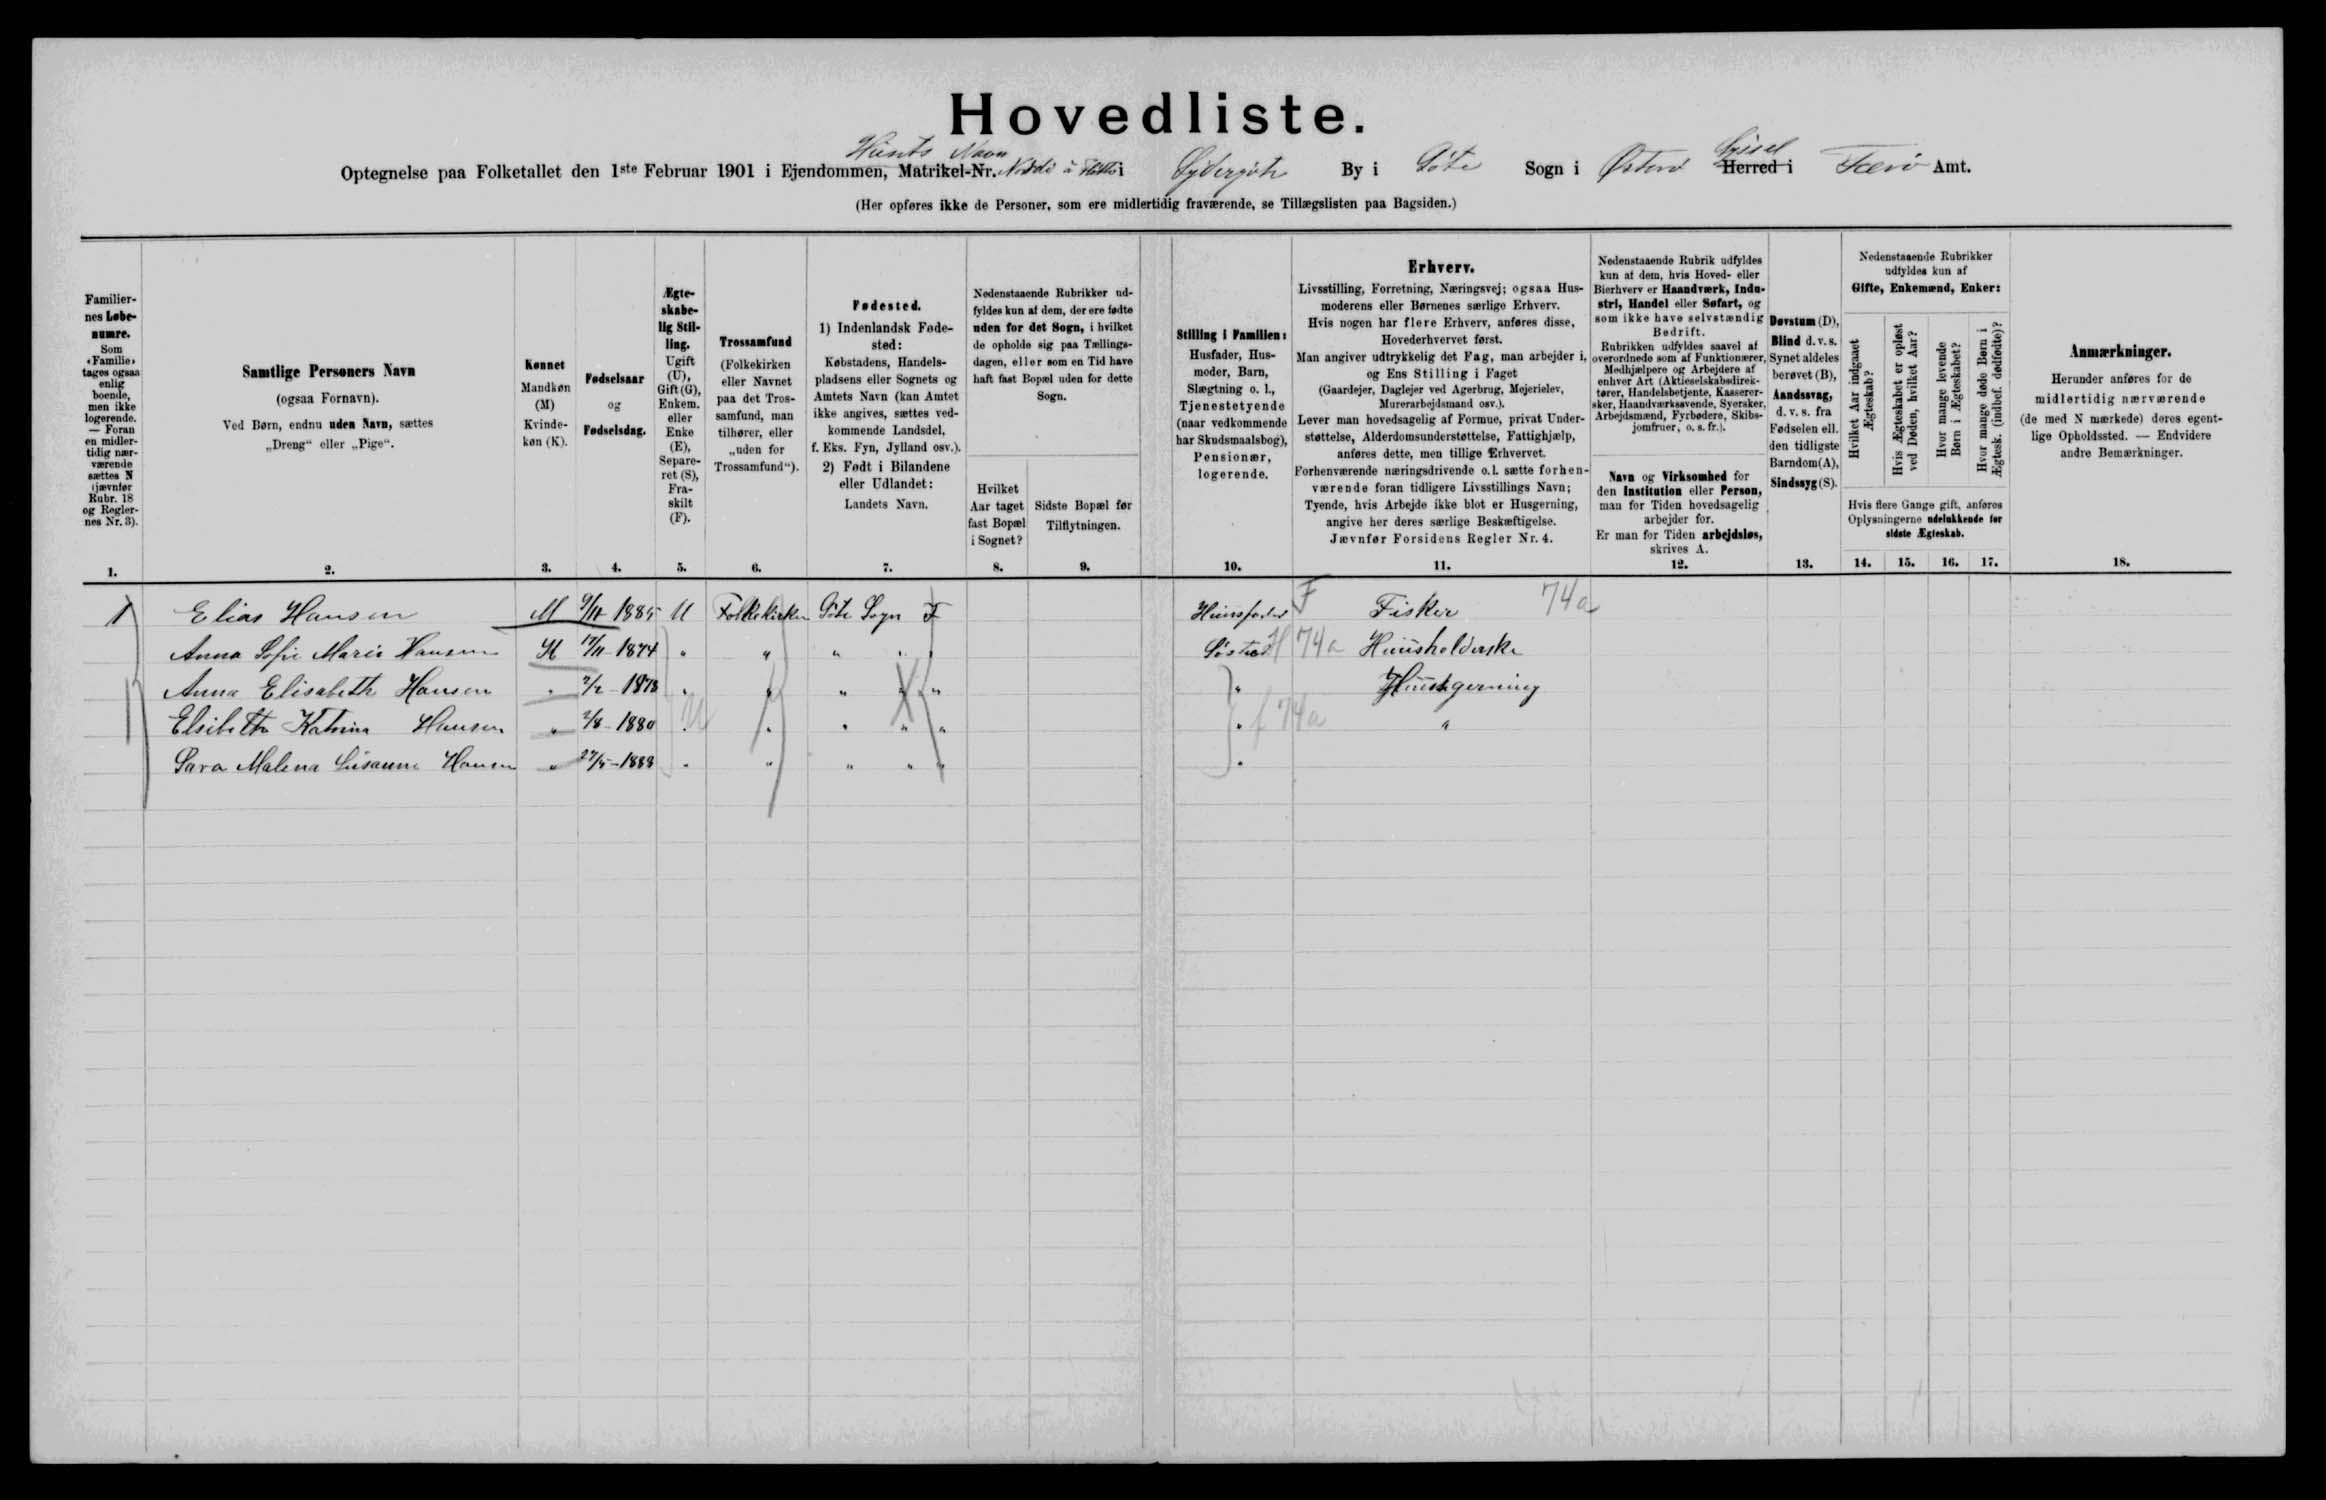 Hovedliste.
Huusts Navn Syssel
Optegnelse paa Folketallet den 1ste Februar 1901 i Ejendommen, Matrikel-Nr. i Sydergøte By i Gøte Sogn i Østerø Herred i Færø Amt.
(Her opføres ikke de Personer, som ere midlertidig fraværende, se Tillægslisten paa Bagsiden.)
Familiernes Løbenumre.
Som «Familie» tages ogsaa enlig boende, men ikke logerende. — Foran en midlertidig nærværende sættes N (jævnfør Rubr. 18 og Reglernes Nr. 3).
1.
Samtlige Personers Navn
(ogsaa Fornavn).
Ved Børn, endnu uden Navn, sættes
„Dreng“ eller „Pige“.
2.
Kønnet
Mandkøn (M)
Kvindekøn (K).
3.
Fødselsaar
og
Fødselsdag.
4.
Ægteskabelig Stilling.
Ugift (U), Gift (G), Enkem. eller Enke (E), Separeret (S), Fraskilt (F).
5.
Trossamfund
(Folkekirken eller Navnet paa det Trossamfund, man tilhører, eller „uden for Trossamfund“).
6.
Fødested.
1) Indenlandsk Fødested:
Købstadens, Handelspladsens eller Sognets og Amtets Navn (kan Amtet ikke angives, sættes vedkommende Landsdel, f. Eks. Fyn, Jylland osv.).
2) Født i Bilandene eller Udlandet:
Landets Navn.
7.
Nedenstaaende Rubrikker udfyldes kun af dem, der ere fødte uden for det Sogn, i hvilket de opholde sig paa Tællingsdagen, eller som en Tid have haft fast Bopæl uden for dette Sogn.
Hvilket Aar taget fast Bopæl i Sognet?
8.
Sidste Bopæl før Tilflytningen.
9.
Stilling i Familien:
Husfader, Husmoder, Barn, Slægtning o. l., Tjenestetyende (naar vedkommende har Skudsmaalsbog), Pensionær, logerende.
10.
Erhverv.
Livsstilling, Forretning, Næringsvej; ogsaa Husmoderens eller Børnenes særlige Erhverv.
Hvis nogen har flere Erhverv, anføres disse, Hovederhvervet først.
Man angiver udtrykkelig det Fag, man arbejder i, og Ens Stilling i Faget
(Gaardejer, Daglejer ved Agerbrug, Mejerielev, Murerarbejdsmand osv.).
Lever man hovedsagelig af Formue, privat Understøttelse, Alderdomsunderstøttelse, Fattighjælp, anføres dette, men tillige Erhvervet.
Forhenværende næringsdrivende o. l. sætte forhenværende foran tidligere Livsstillings Navn;
Tyende, hvis Arbejde ikke blot er Husgerning, angive her deres særlige Beskæftigelse.
Jævnfør Forsidens Regler Nr. 4.
11.
Nedenstaaende Rubrik udfyldes kun af dem, hvis Hoved- eller Bierhverv er Haandværk, Industri, Handel eller Søfart, og som ikke have selvstændig Bedrift.
Rubrikken udfyldes saavel af overordnede som af Funktionærer, Medhjælpere og Arbejdere af enhver Art (Aktieselskabsdirektører, Handelsbetjente, Kasserersker, Haandværkssvende, Syersker, Arbejdsmænd, Fyrbødere, Skibsjomfruer, o. s. fr.).
Navn og Virksomhed for den Institution eller Person, man for Tiden hovedsagelig arbejder for.
Er man for Tiden arbejdsløs, skrives A.
12.
Døvstum (D), Blind d. v. s. Synet aldeles berøvet (B), Aandssvag, d. v. s. fra Fødselen ell. den tidligste Barndom (A), Sindssyg (S).
13.
Nedenstaaende Rubrikker udfyldes kun af Gifte, Enkemænd, Enker:
Hvilket Aar indgaaet Ægteskab?
Hvis Ægteskabet er opløst ved Døden, hvilket Aar?
Hvor mange levende Børn i Ægteskabet?
Hvor mange døde Børn i Ægtesk. (indbef. dødfødte)?
Hvis flere Gange gift, anføres Oplysningerne udelukkende for sidste Ægteskab.
14. 15. 16. 17.
Anmærkninger.
Herunder anføres for de midlertidig nærværende (de med N mærkede) deres egentlige Opholdssted. — Endvidere andre Bemærkninger.
18.
1 Elias Hansen M 9/11 1885 U Folkekirken Gøte Sogn F Huusfader F Fisker 74a
Anna Sofie Marie Hansen K 17/11 1874 " " " " Søster H 74a Huusholderske
Anna Elisabeth Hansen " 7/2 - 1878 " " " " " " Huusgerning
Elsibetha Katrina Hansen " 2/8 - 1880 " U " " " " " f 74a "
Sara Malena Susanne Hansen " 27/5 - 1888 " " " " " "